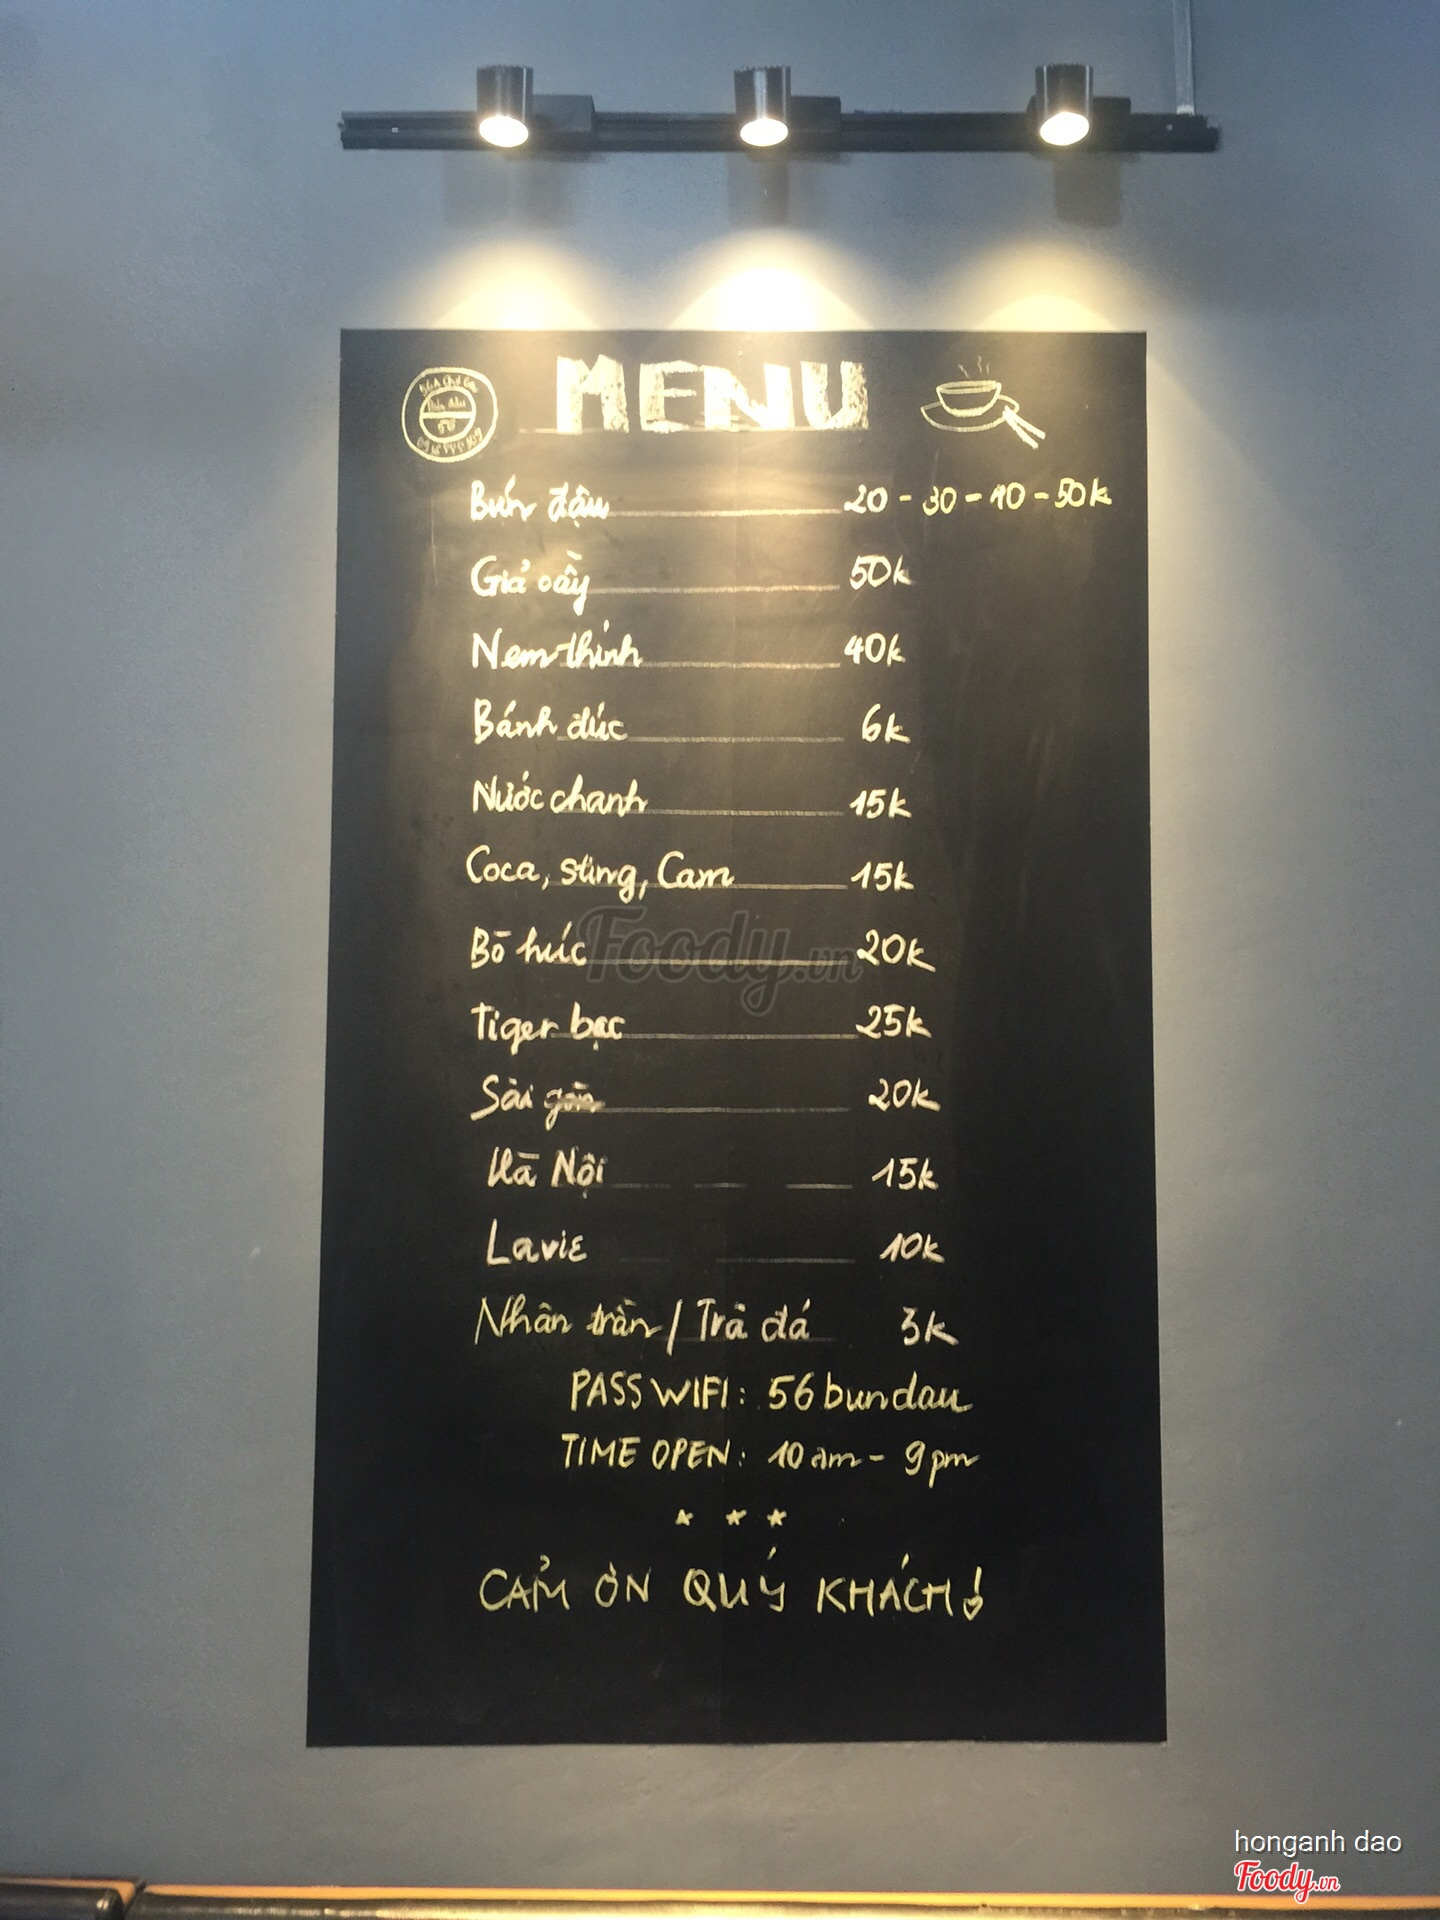 MENU
Bún đậu 20 - 30 - 40 - 50k
Giả cầy 50k
Nem thính 40k
Bánh đúc 6k
Nước chanh 15k
Coca, sting, Cam 15k
Bò húc 20k
Tiger bạc 25k
Sài gòn 20k
Hà Nội 15k
Lavie 10k
Nhân trần / Trà đá 3k
PASS WIFI: 56bundau
TIME OPEN: 10am - 9pm
CẢM ƠN QUÝ KHÁCH!
Foody.vn
honganh dao
Foody.vn